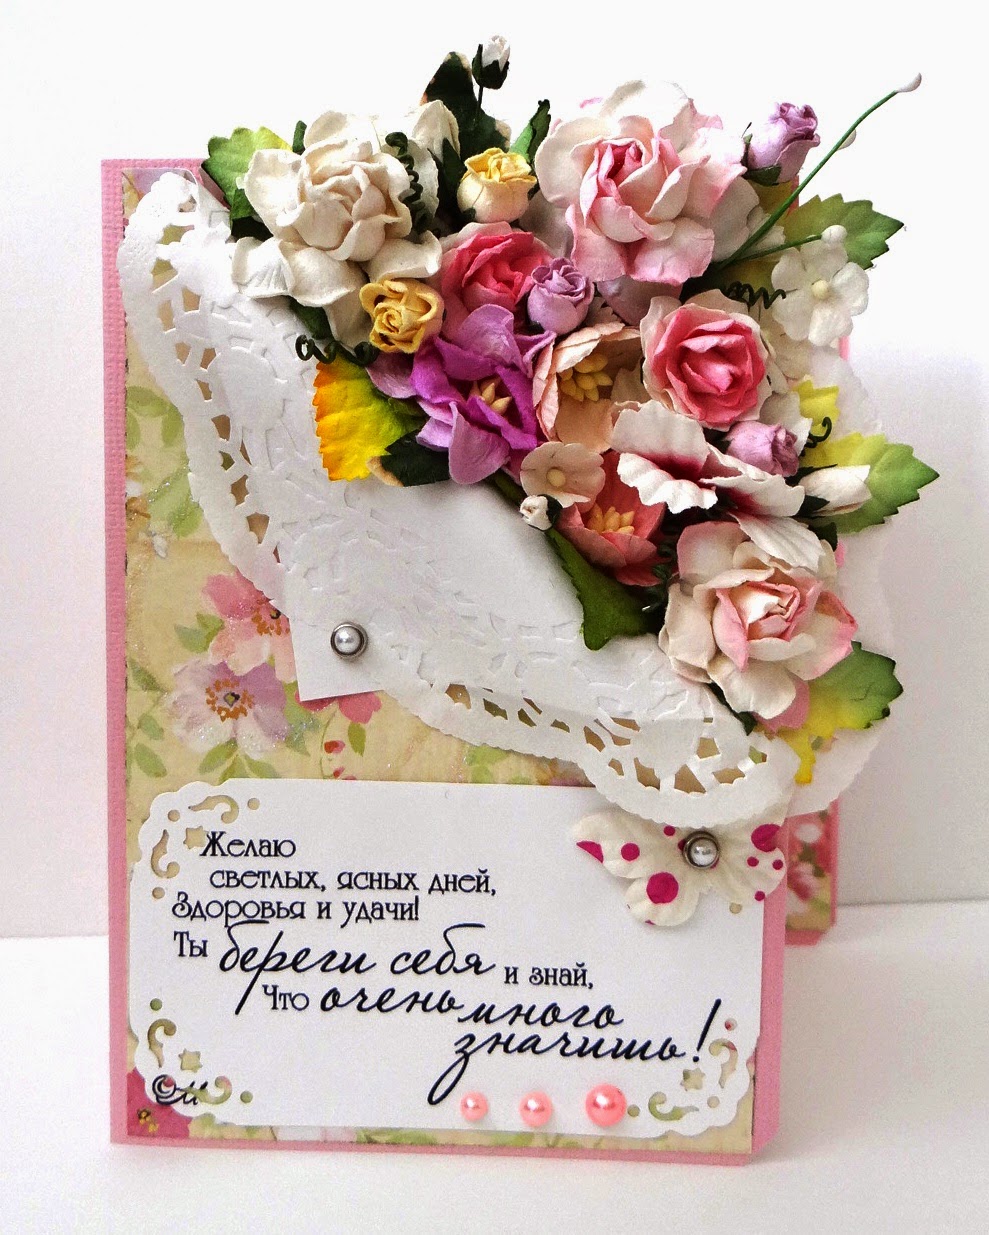 Желаю
светлых, ясных дней,
Здоровья и удачи!
Ты береги себя и знай,
Что очень много
значишь!
©М